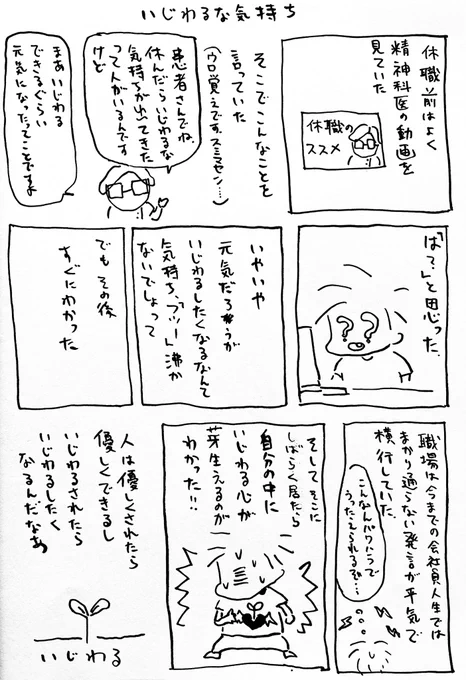 いじわるな気持ち
休職前はよく
精神科医の動画を
見ていた
休職の
ススメ
そこでこんなことを
言っていた
(ウロ覚えですスミマセン…)
患者さんでね、
休んだらいじわるな
気持ちが出てきた
って人がいるんです
けど
まあいじわる
できるぐらい
元気になったってことですよ
「は?」と思った。
いやいや
元気だろうが
いじわるしたくなるなんて
気持ち、フツー沸か
ないでしょって
でもその後
すぐにわかった
職場は今までの会社員人生では
まかり通らない発言が平気で
横行していた。
こんなんパワハラで
うったえられるぞ…
そしてそこに
しばらく居たら
自分の中に
いじわる心が
芽生えるのが
わかった!!
人は優しくされたら
優しくできるし
いじわるされたら
いじわるしたく
なるんだなあ
いじわる